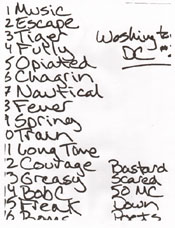 1 Music
2 Escape
3 Tiger
4 Fully
5 Opiated
6 Chagrin
7 Nautical
8 Fever
9 Spring
0 Train
11 Long Time
2 Courage
3 Greasy
14 BobC
5 Freak
6
Washington
DC
Bastard
Scared
50 MC
Down